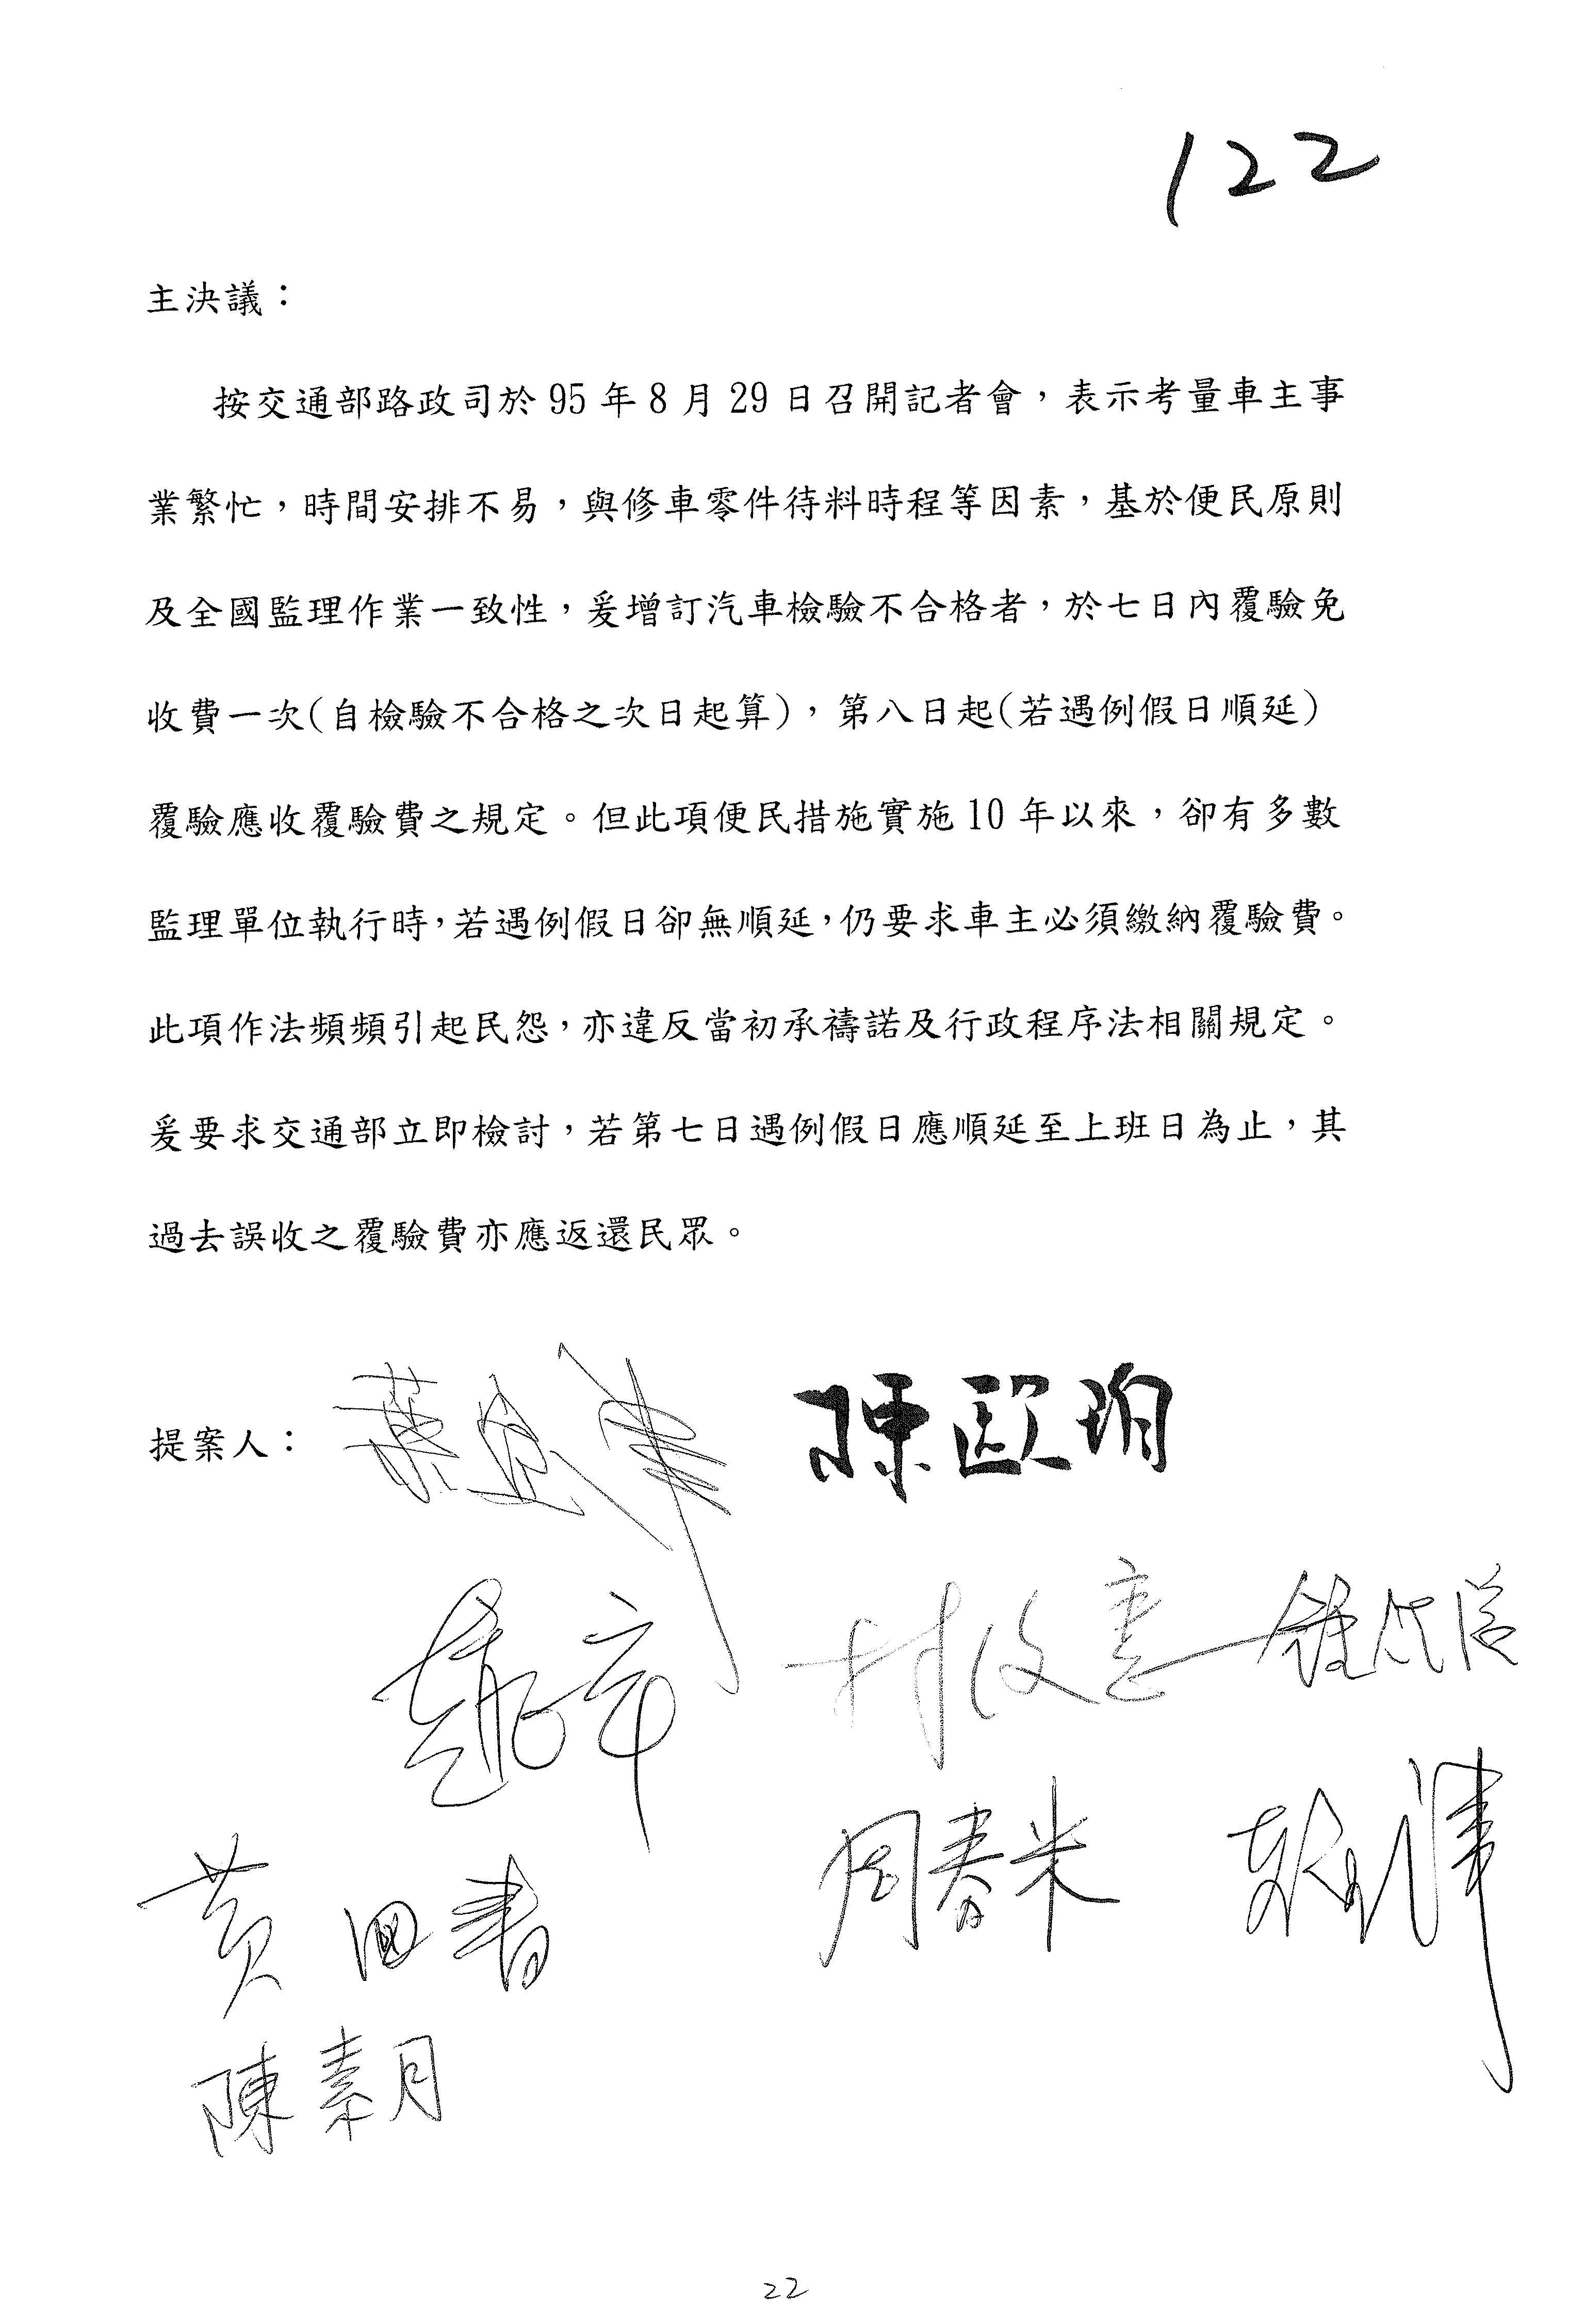 122
主決議：
按交通部路政司於95年8月29日召開記者會，表示考量車主事
業繁忙，時間安排不易，與修車零件待料時程等因素，基於便民原則
及全國監理作業一致性，爰增訂汽車檢驗不合格者，於七日內覆驗免
收費一次(自檢驗不合格之次日起算)，第八日起(若遇例假日順延)
覆驗應收覆驗費之規定。但此項便民措施實施10年以來，卻有多數
監理單位執行時，若遇例假日卻無順延，仍要求車主必須繳納覆驗費。
此項作法頻頻引起民怨，亦違反當初承禱諾及行政程序法相關規定。
爰要求交通部立即檢討，若第七日遇例假日應順延至上班日為止，其
過去誤收之覆驗費亦應返還民眾。
提案人： 葉宜津 陳歐珀
黃國書 周春米
陳素月
22